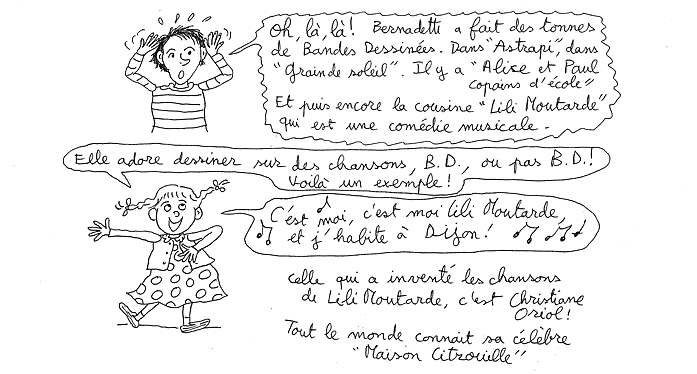 Oh, là, là! Bernadette a fait des tonnes
de Bandes Dessinées. Dans "Astrapi", dans
"Grain de soleil". Il y a "Alice et Paul
copains d'école"
Et puis encore la cousine "Lili Moutarde"
qui est une comédie musicale.
Elle adore dessiner sur des chansons, B.D., ou pas B.D.!
Voilà un exemple!
C'est moi, c'est moi Lili Moutarde,
et j'habite à Dijon!
Celle qui a inventé les chansons
de Lili Moutarde, c'est Christiane
Oriol!
Tout le monde connait sa célèbre
"Maison Citrouille"